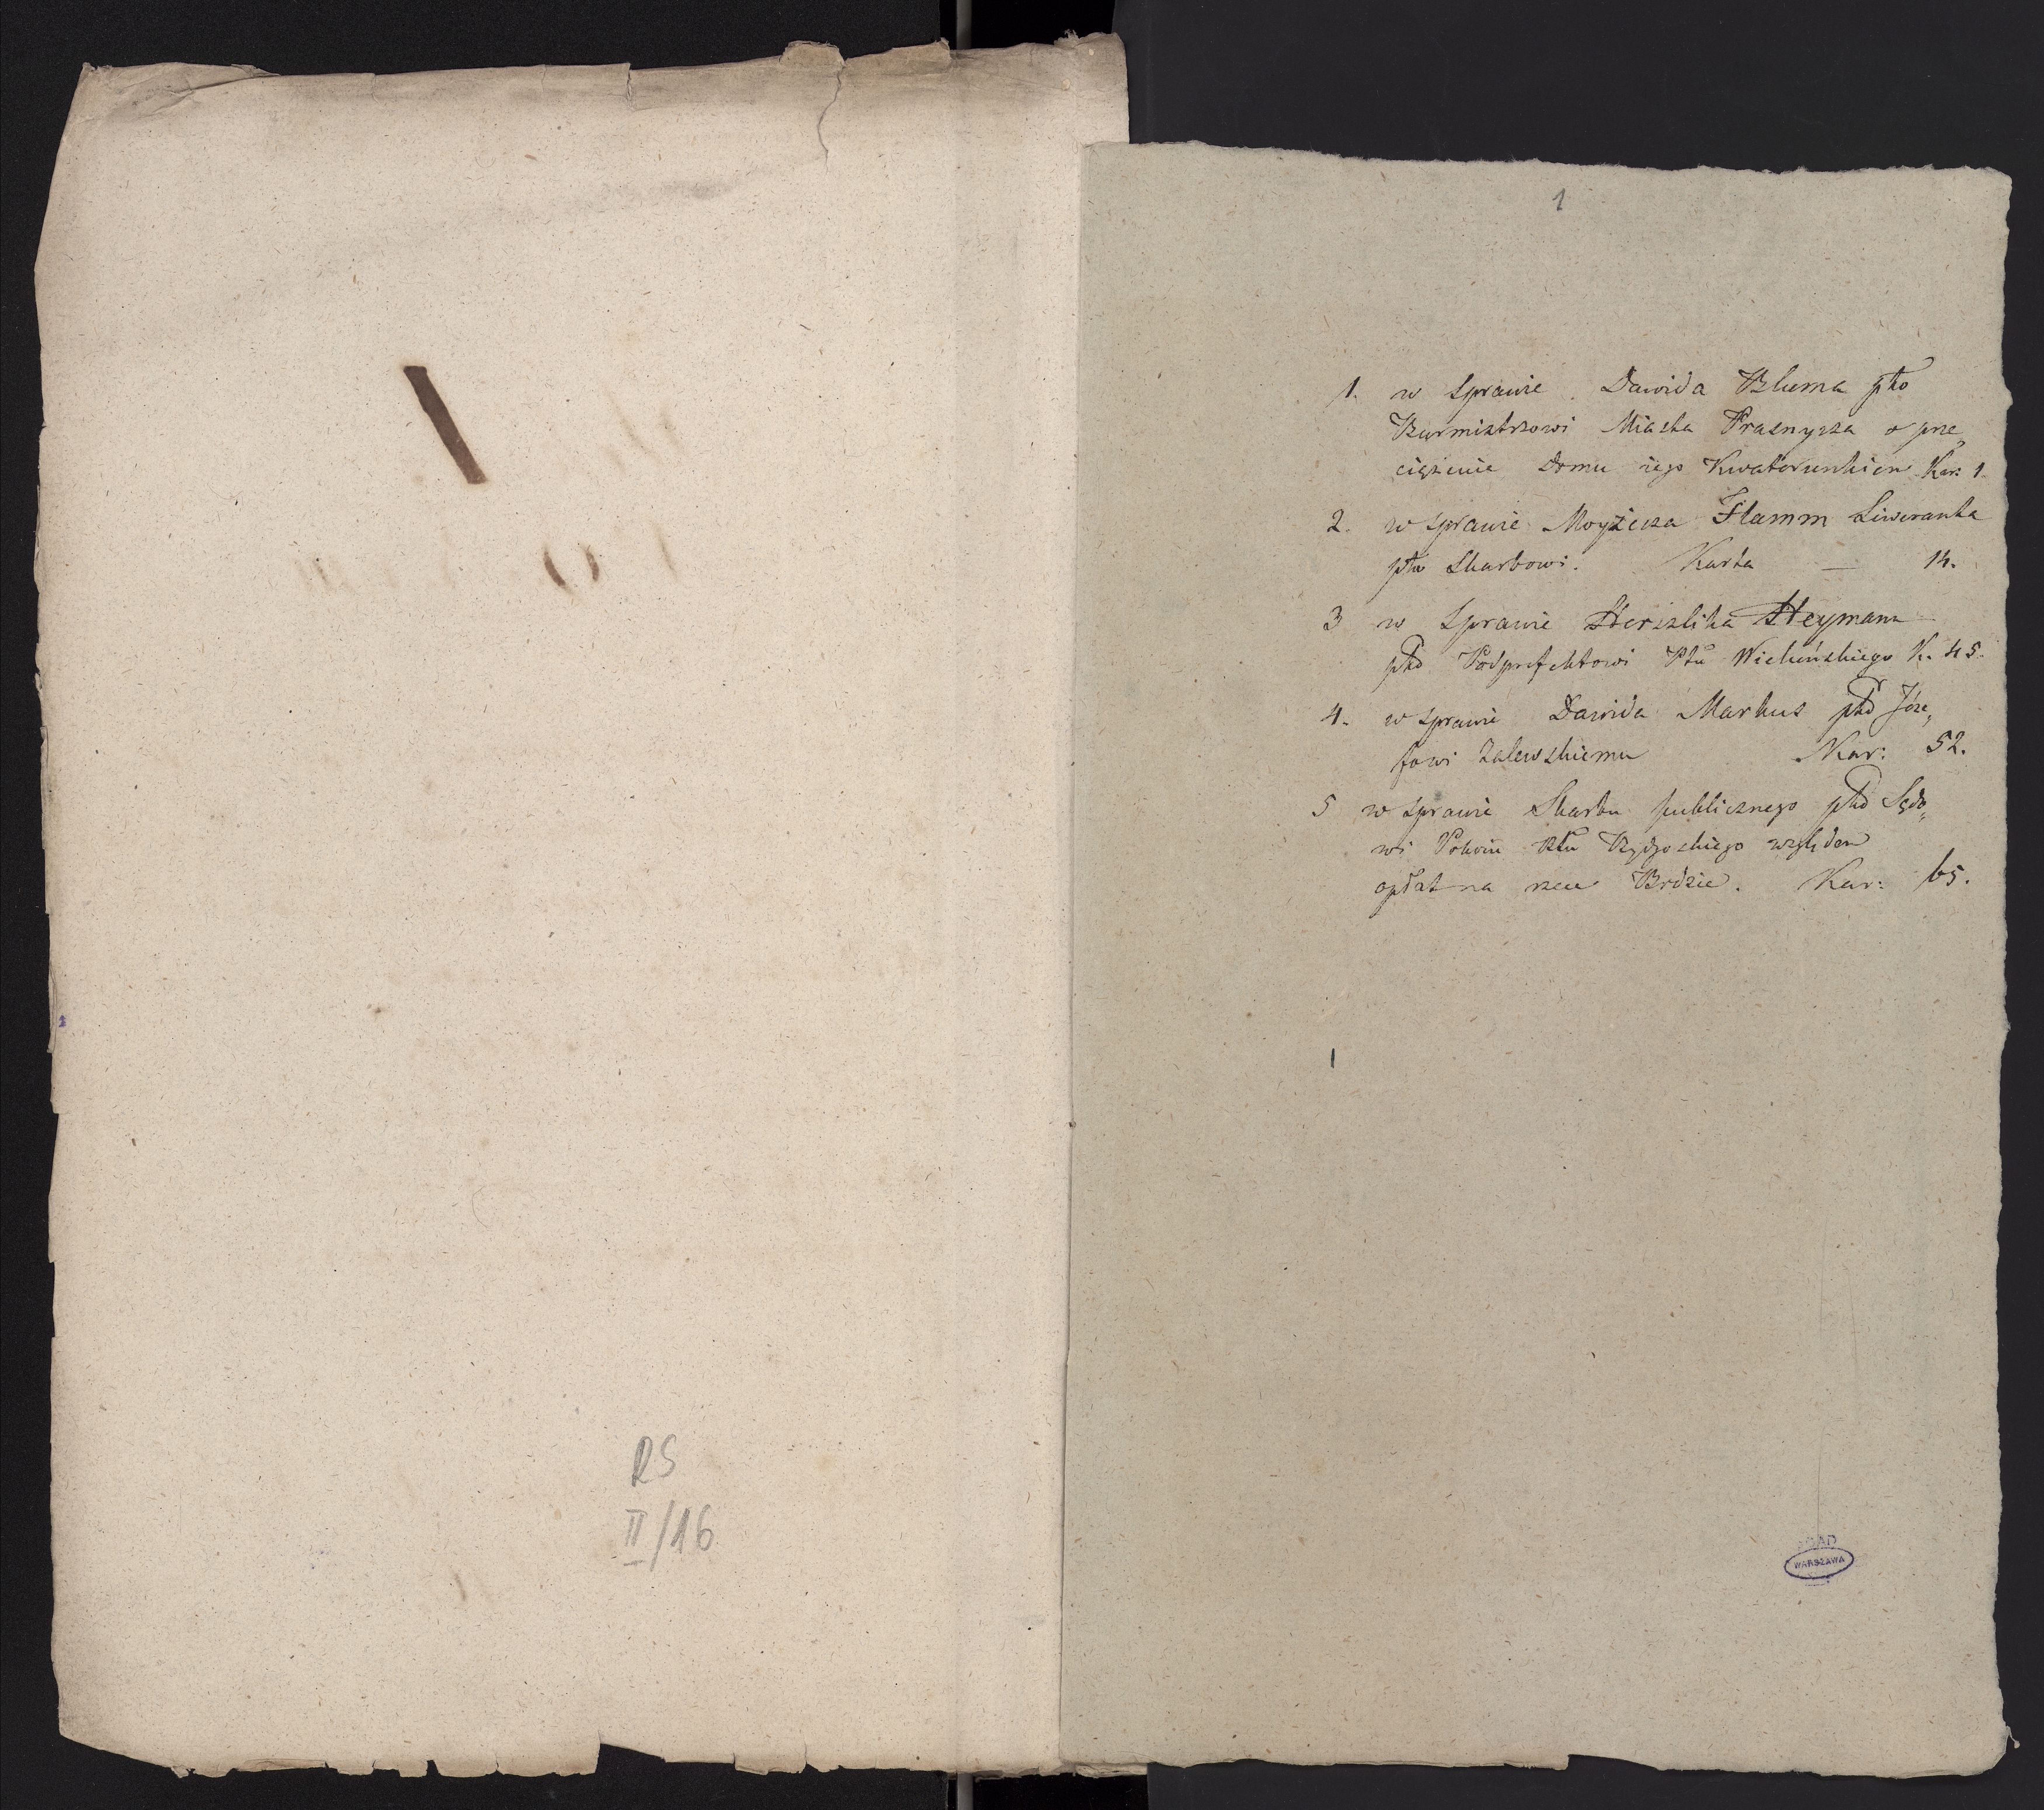 RS
II/16
1
1. w Sprawie Dawida Bluma pko
Burmistrzowi Miasta Prasnysza o prze„
ciążenie Domu iego Kwaterunkiem Kar: 1.
2. w Sprawie Moyżesza Flamm Liweranta
pko Skarbowi. Karta — 14.
3 w Sprawie Herszlika Heymann
pko Podprefektowi Ptu Wieluńskiego K. 45.
4. w Sprawie Dawida Markus pko Józe„
fowi Zalewskiemu Kar: 52.
5 w Sprawie Skarbu publicznego pko Sądo„
wi Pokoiu Ptu Bydgoskiego względem
opłat na rzece Brdzie. Kar: 65.
AGAD
WARSZAWA